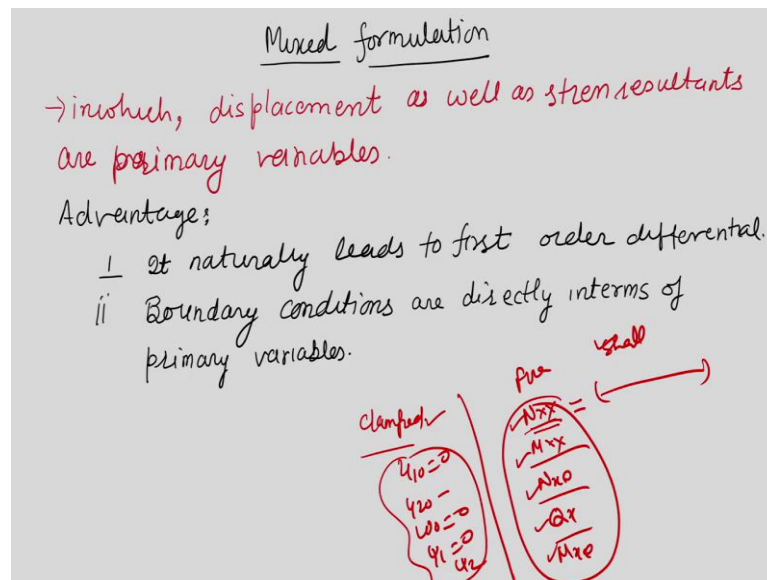 Mixed formulation
→ in which, displacement as well as stress resultants
are primary variables.
Advantage:
i It naturally leads to first order differential.
ii Boundary conditions are directly interms of
primary variables.
shell
free
clamped
Nxx =
Mxx
Nxθ
Qx
Mxθ
u10=0
u20 =
w0=0
ψ1=0
ψ2